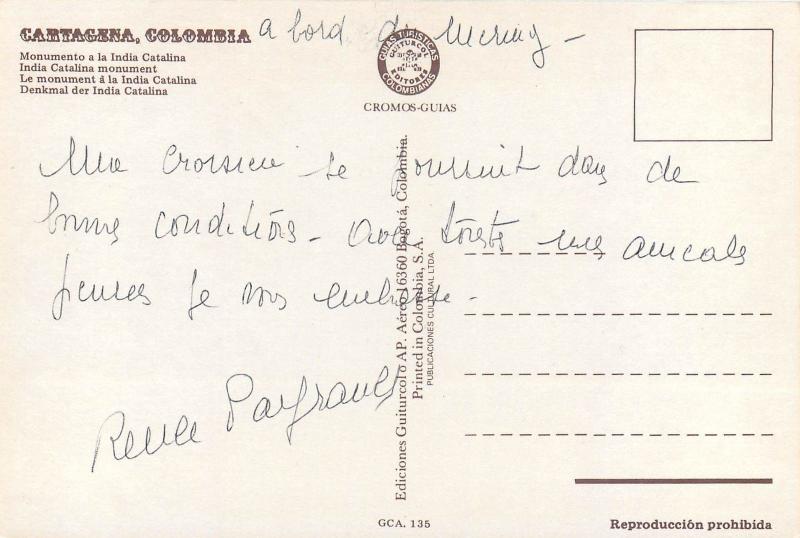 CARTAGENA, COLOMBIA
Monumento a la India Catalina
India Catalina monument
Le monument á la India Catalina
Denkmal der India Catalina
a bord du Mermoz -
GUIAS TURISTICAS
GUITURCOL
EDITORES
COLOMBIANAS
CROMOS-GUIAS
Ma croisière se poursuit dans de
bonnes conditions - avec toutes mes amicales
pensées je vous embrasse -
Renée
Ediciones Guiturcol o AP. Aéreo 16360 Bogotá, Colombia.
Printed in Colombia, S.A.
PUBLICACIONES CULTURAL LTDA
GCA. 135
Reproducción prohibida